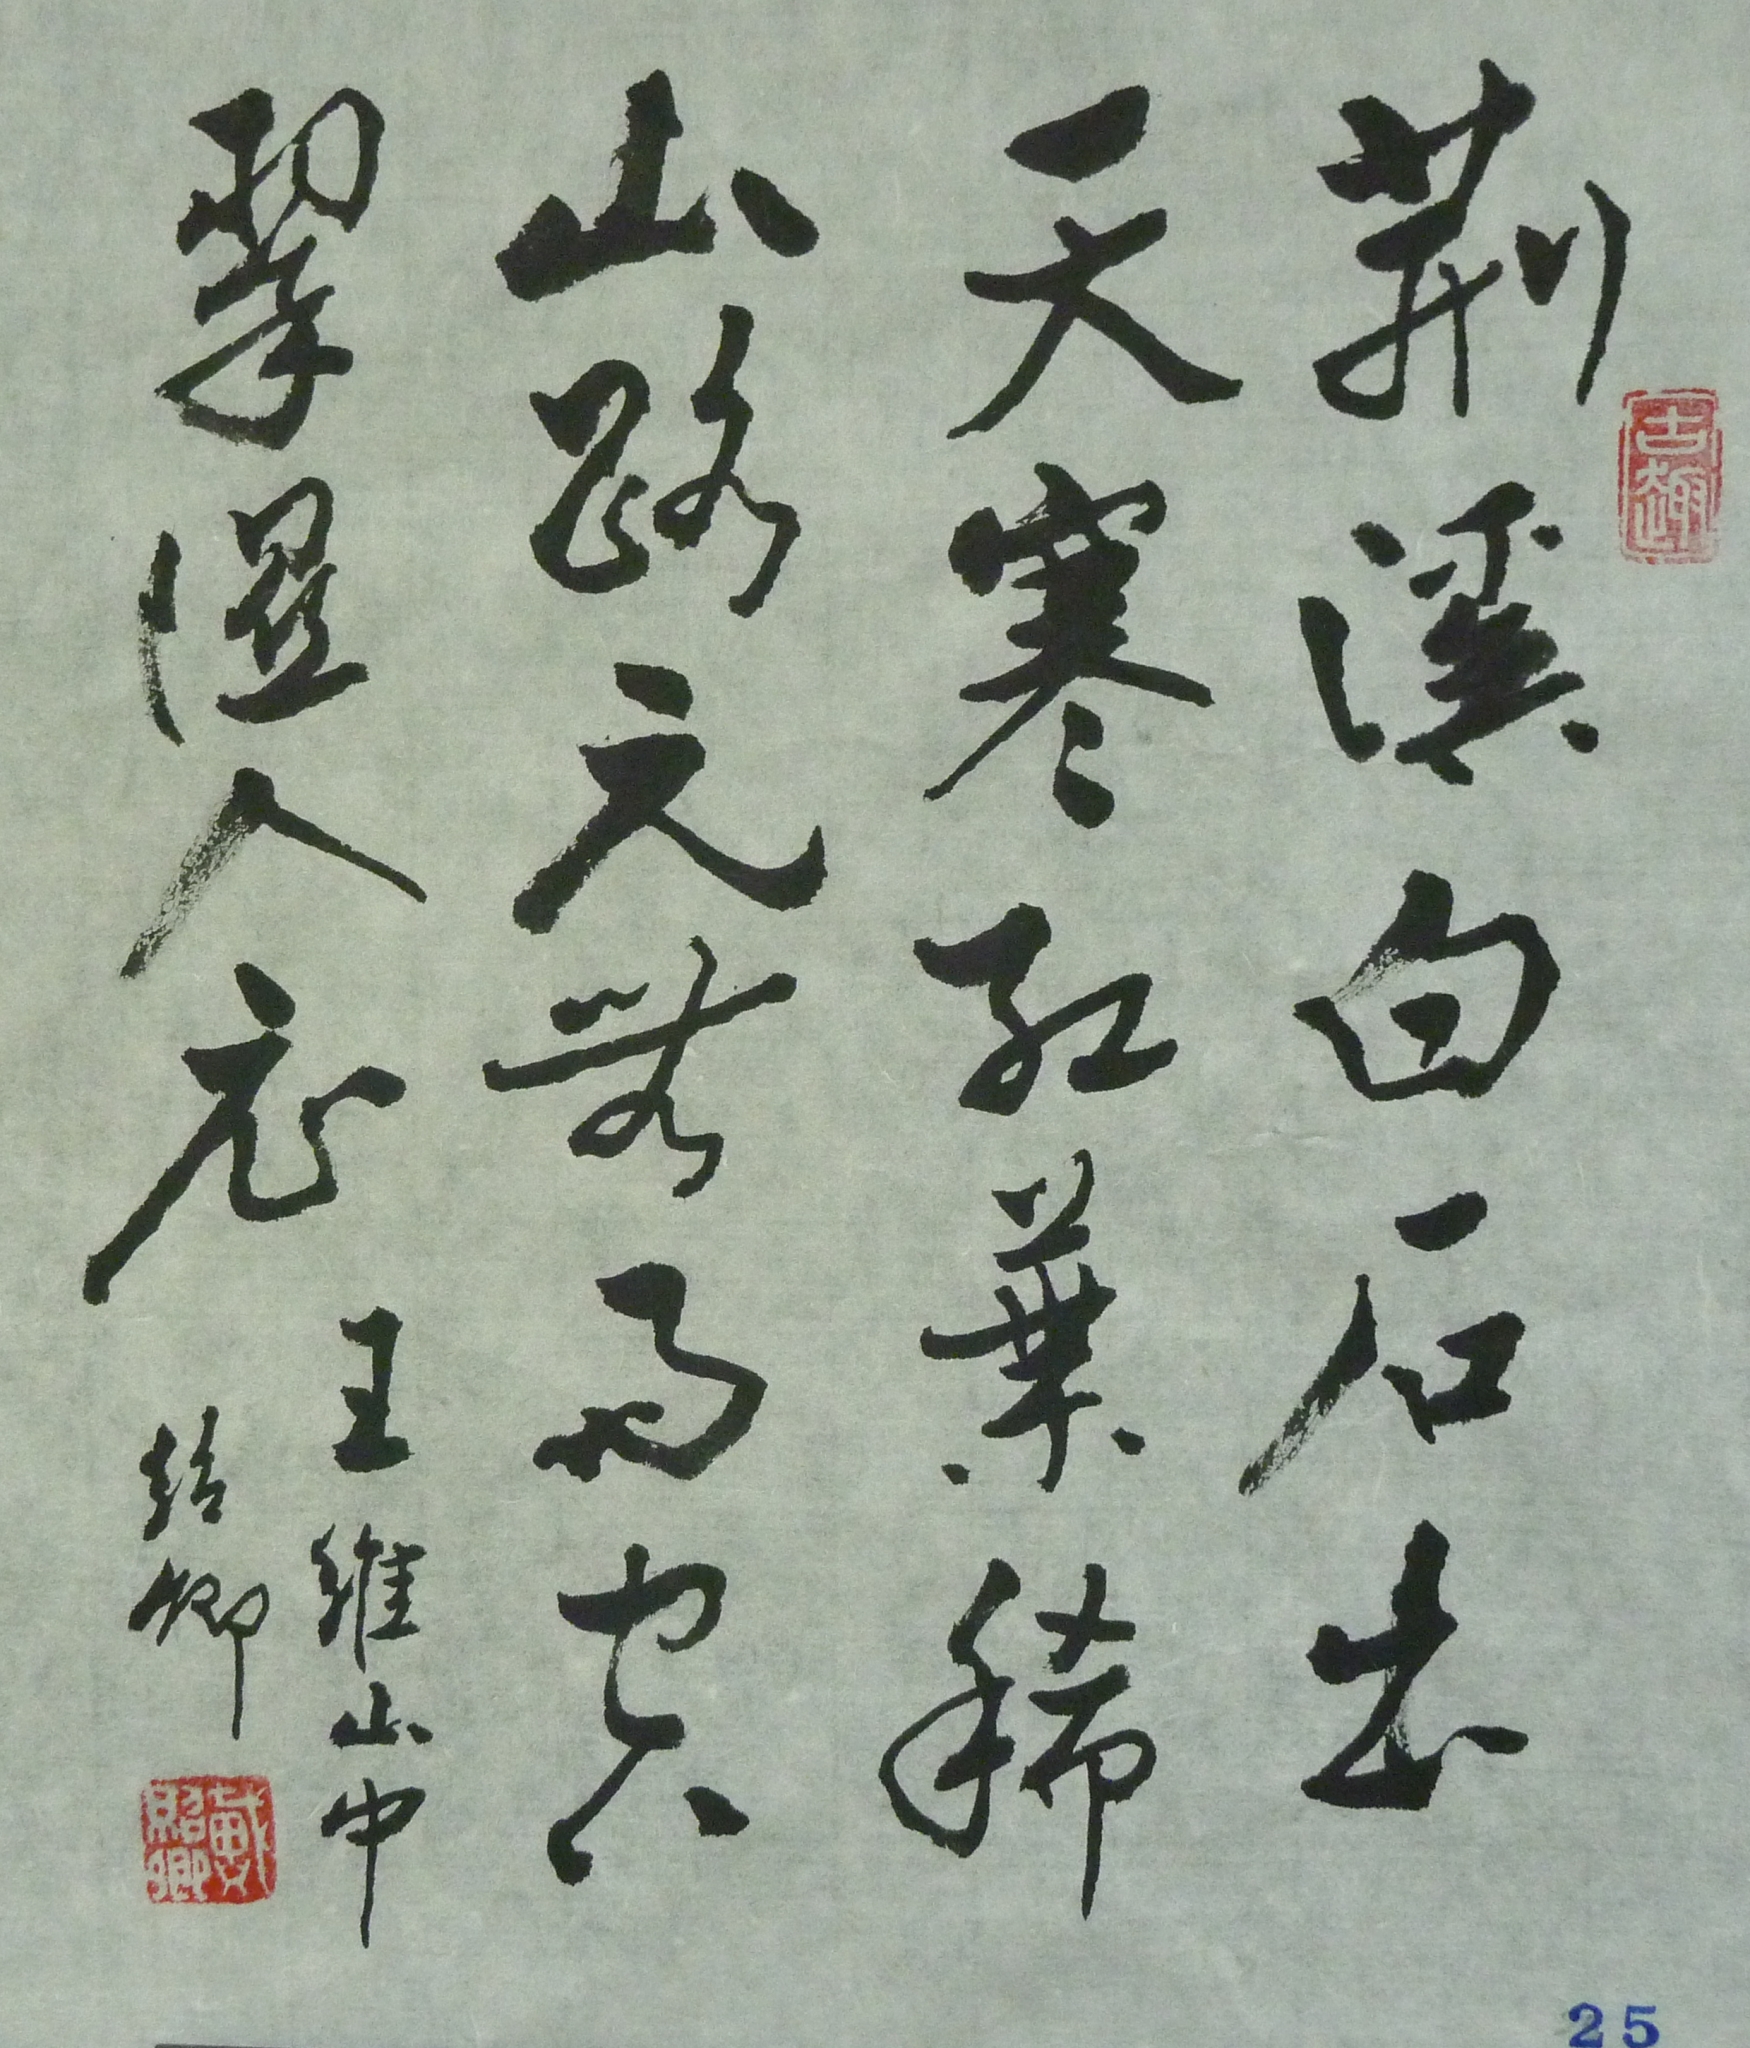 荊溪白石出
天寒紅葉稀
山路元無雨空
翠濕人衣
王維山中
紹卿
古趣
戴紹卿
25